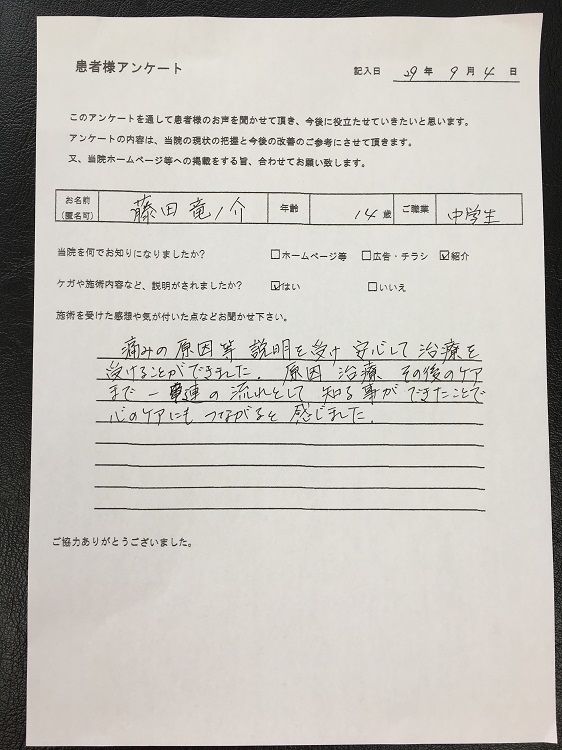 患者様アンケート
記入日 29年 9月 4日
このアンケートを通して患者様のお声を聞かせて頂き、今後に役立たせていきたいと思います。
アンケートの内容は、当院の現状の把握と今後の改善のご参考にさせて頂きます。
又、当院ホームページ等への掲載をする旨、合わせてお願い致します。
お名前(匿名可) 藤田竜ノ介 年齢 14歳 ご職業 中学生
当院を何でお知りになりましたか? □ホームページ等 □広告・チラシ ☑紹介
ケガや施術内容など、説明がされましたか? ☑はい □いいえ
施術を受けた感想や気が付いた点などお聞かせ下さい。
痛みの原因等 説明を受け 安心して治療を
受けることができました。原因 治療 その後のケア
まで一連の流れとして 知る事ができたことで
心のケアにもつながると感じました。
ご協力ありがとうございました。